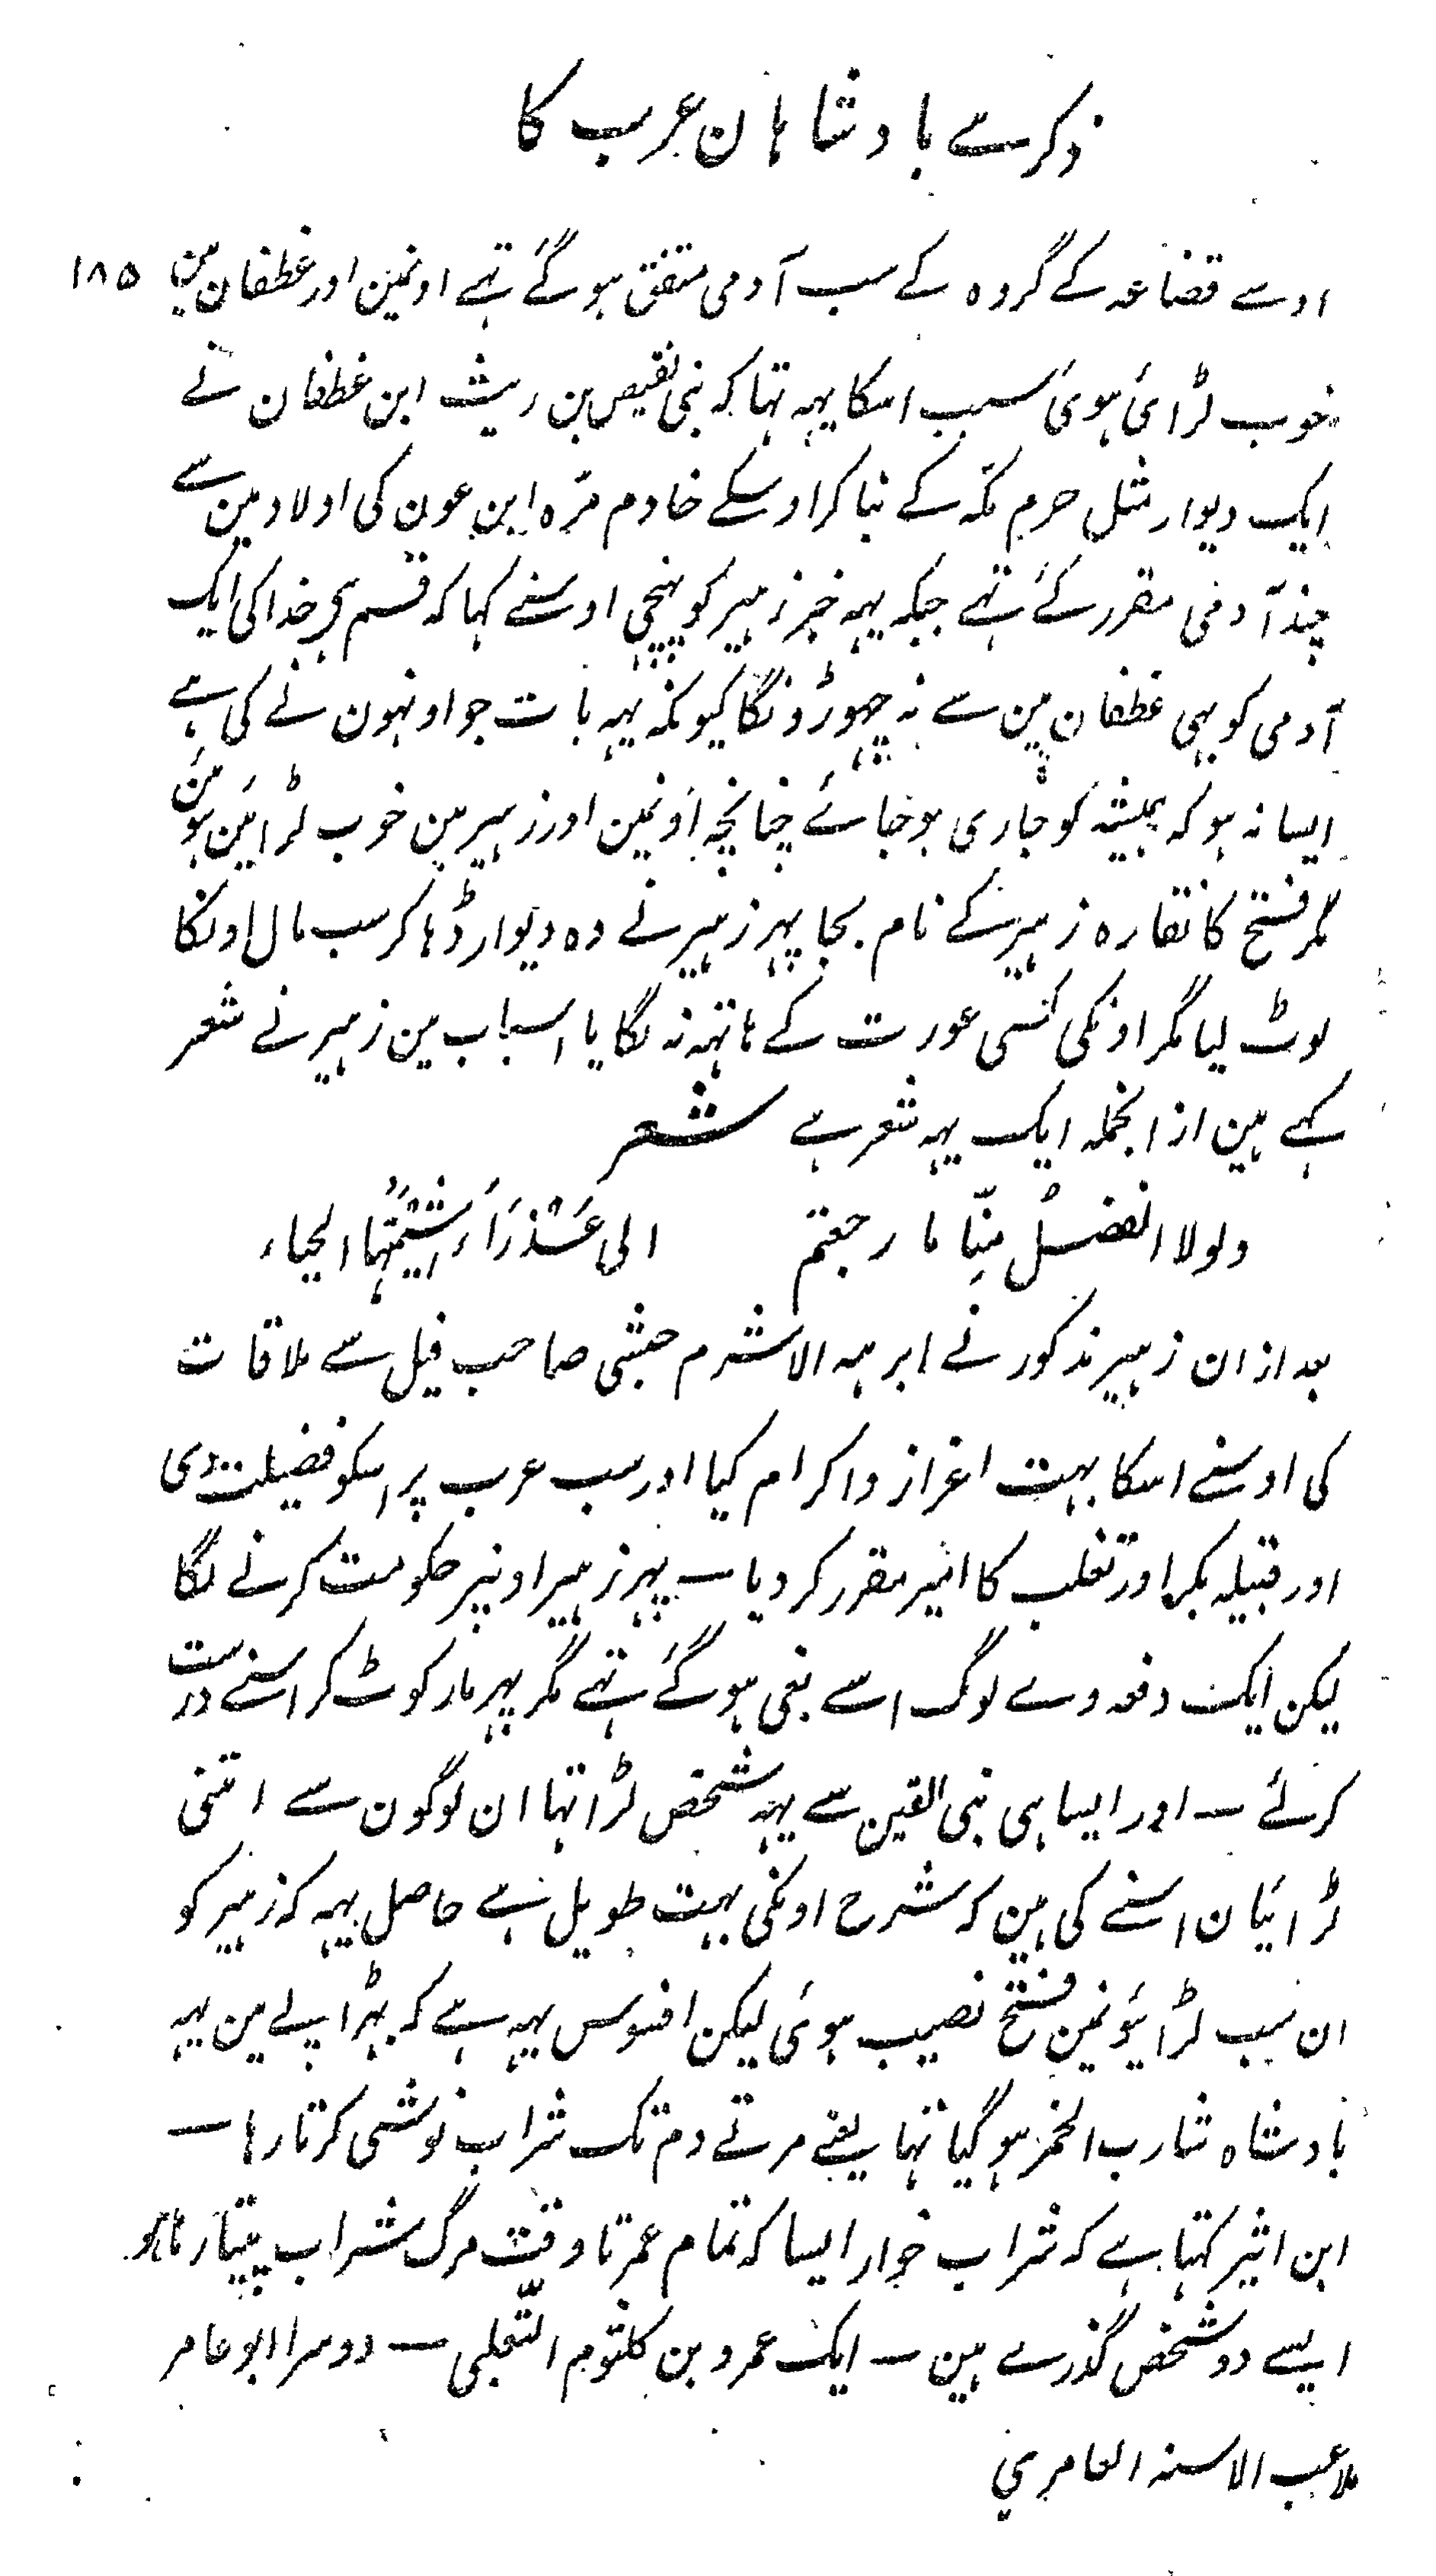 ذکر سے بادشاہان عرب کا
١٨٥
اوسے قضاعہ کے گروہ کے سب آدمی متفق ہوگئے تہے اونمین اور غطفان مین
خوب لڑائی ہوئی سبب اسکا یہہ تہا کہ بنی نقیص بن ریث ابن غطفان نے
ایک دیوار مثل حرم مکہ کے بنا کر اوسکے خادم مرّہ ابن عون کی اولاد مین سے
چند آدمی مقرر کئے تہے جبکہ یہہ خبر زہیر کو پہنچی اوسنے کہا کہ قسم ہی خدا کی ایک
آدمی کو بہی غطفان مین سے نہ چہوڑونگا کیونکہ یہہ بات جو اونہون نے کی ہے
ایسا نہ ہو کہ ہمیشہ کو جاری ہوجائے چنانچہ اونمین اور زہیر مین خوب لڑائین ہوئین
مگر فتح کا نقارہ زہیر کے نام بجا پہر زہیر نے وہ دیوار ڈہا کر سب مال اونکا
لوٹ لیا مگر اونکی کسی عورت کے ہاتہہ نہ لگایا اسباب مین زہیر نے شعر
کہے ہین از انجملہ ایک یہہ شعر ہے شعر
ولولا الفضلُ مِنّا ما رجعتم الی عَذْرَاَءَ شِیْمَتُہا الحیاء
بعد ازان زہیر مذکور نے ابرہہ الاشرم حبشی صاحب فیل سے ملاقات
کی اوسنے اسکا بہت اعزاز و اکرام کیا اور سب عرب پر اسکو فضیلت دی
اور قبیلہ بکر اور تغلب کا امیر مقرر کردیا ــ پہر زہیر اونپر حکومت کرنے لگا
لیکن ایک دفعہ وے لوگ اسے بغی ہوگئے تہے مگر پہر مار کوٹ کر اسنے درست
کرلئے ــ اور ایسا ہی بنی القین سے یہہ شخص لڑا تہا ان لوگون سے اتنی
لڑائیان اسنے کی ہین کہ شرح اونکی بہت طویل ہے حاصل یہہ کہ زہیر کو
ان سب لڑائیونمین فتح نصیب ہوئی لیکن افسوس یہہ ہے کہ بہڑاپے مین یہہ
بادشاہ شارب الخمر ہوگیا تہا یعنے مرتے دم تک شراب نوشی کرتا رہا ــ
ابن اثیر کہتا ہے کہ شراب خوار ایسا کہ تمام عمر تا وقت مرگ شراب پیتا رہا ہو
ایسے دو شخص گذرے ہین ــ ایک عمرو بن کلثوم التّغلبی ــ دوسرا ابو عامر
ملاعب الاسنہ العامری